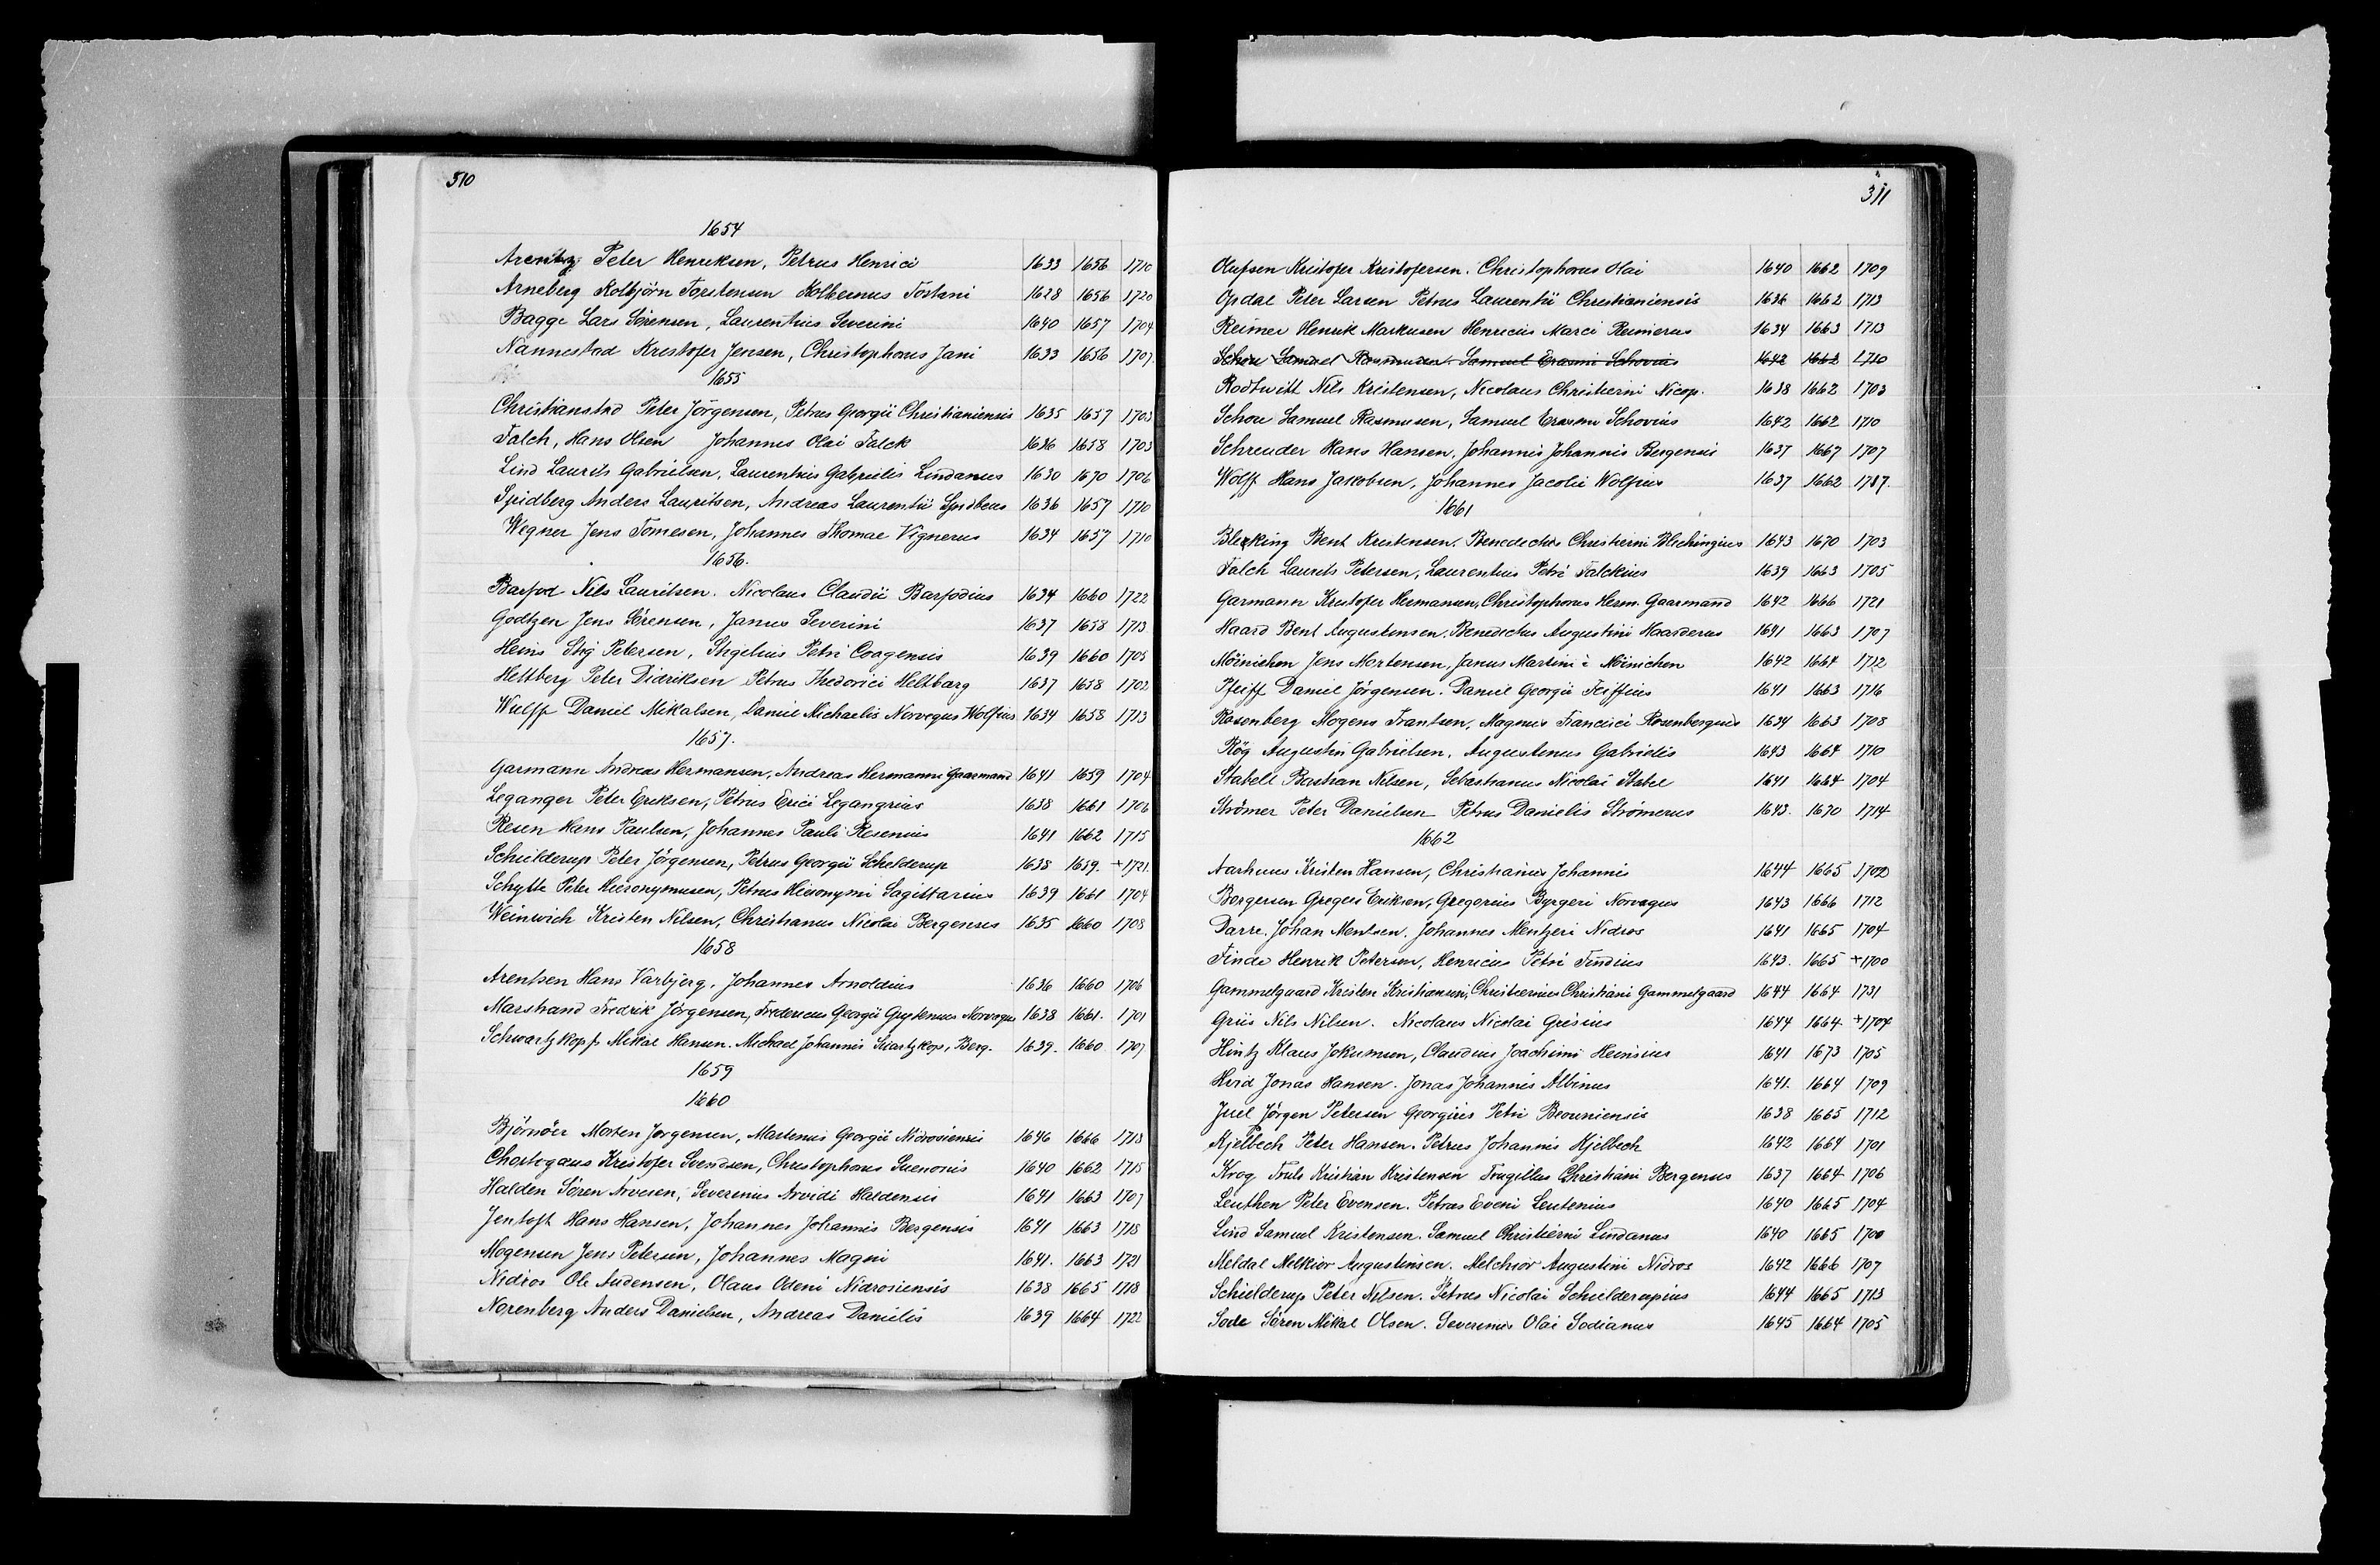 310
1654
Arentz Peter Henriksen, Petrus Henrici 1633 1656 1710
Arneberg Kolbjörn Torstensen Kolbernus Tostani 1628 1656 1720
Bagge Lars Sörensen, Laurentius Severini 1640 1657 1704
Nannestad Kristofer Jensen, Christophorus Jani 1633 1656 1707.
1655
Christianstad Peter Jörgensen, Petrus Georgii Christianiensis 1635 1657 1703
Falch, Hans Olsen Johannes Olai Falck 1636 1658 1703
Lind Laurits Gabrielsen, Laurentius Gabrielis Lindanus 1630 1670 1706
Spidberg Anders Lauritsen, Andreas Laurentii 1636 1657 1710
Wegner Jens Tomesen, Johannes Thomae Vignerus 1634 1657 1710
1656.
Barfod Nils Lauritsen. Nicolaus Claudii Barfodius 1634 1660 1722
Godtzen Jens Sörensen, Janus Severini 1637 1658 1713
Heins Stig Petersen, Stigelius Petri Coagensis 1639 1660 1705
Heltberg Peter Didriksen Petrus Thedorici Heltbarg 1637 1658 1702
Wulff Daniel Mikalsen, Daniel Michaelis Norvegus Wolfius 1634 1658 1713
1657.
Garmann Andreas Hermansen, Andreas Hermanni Gaarmand 1641 1659 1704
Leganger Peter Eriksen, Petrus Erici Legangrius 1638 1661 1706
Resen Hans Paulsen, Johannes Pauli Resenius 1641 1662 1715
Schielderup Peter Jörgensen, Petrus Georgii Schelderup 1638 1659. +1721.
Schytte Peter Hieronymusen, Petrus Hieronymi Sagittarius 1639 1661 1704
Weinwich Kristen Nilsen, Christianus Nicolai Bergensis 1635 1660 1708
1658
Arentsen Hans Varbjerg, Johannes Arnoldius 1636 1660 1706
Marstrand Fredrik Jörgensen, Fredericus Georgii Norvegus 1638 1661. 1701
Schwartzkopf Mikal Hansen. Michael Johannis Suartzkop, Berg. 1639. 1660 1707
1659
1660
Björnöer Morten Jorgensen, Martenus Georgii Nidrosiensis 1646 1666 1713
Kristofer Svendsen, Christophorus Suenonis 1640 1662 1715
Halden Sören Arvesen, Severinus Arvidi Haldensis 1641 1663 1707
Jentoft Hans Hansen, Johannes Johannis Bergensis 1641 1663 1718
Mogensen Jens Petersen, Johannes Magni 1641. 1663 1721
Nidros Ole Audensen, Olaus Odeni Nidrosiensis 1638 1665 1718
Norenberg Anders Danielsen, Andreas Danielis 1639 1664 1722
311
Olufsen Kristofer Kristofersen. Christophorus Olai 1640 1662 1709
Opdal Peter Larsen Petrus Laurentii Christianiensis 1636 1662 1713
Reimer Henrik Markusen Henricus Marci Reimerus 1634 1663 1713
Schou Samuel Rasmusen. Samuel Erasmi Schovius 1642 1662 1710
Rodtwitt Nils Kristensen, Nicolaus Christierni Nicop. 1638 1662 1703
Schou Samuel Rasmusen, Samuel Erasmi Schovius 1642 1662 1710
Schreuder Hans Hansen, Johannis Johannis Bergensis 1637 1667 1707
Wolff Hans Jakobsen, Johannes Jacobi Wolfius 1637 1662
1661
Bleking Bent Kristensen. Benedictus Christierni Blechingius 1643 1670 1703
Falch Laurits Petersen, Laurentius Petri Falckius 1639 1663 1705
Garmann Kristofer Hermansen, Christophorus Herm. Gaarmand 1642 1666 1721
Haard Bent Augustinsen. Benedictus Augustini Haarderus 1641 1663 1707
Möinichen Jens Mortensen, Janus Martini à Möinichen 1642 1664 1712
Pfeiff Daniel Jörgensen. Daniel Georgii Feiffius 1641 1663 1716
Rosenberg Mogens Frantsen, Magnus Francisci Rosenbergius 1634 1663 1708
Rög Augustin Gabrielsen. Augustinus Gabrielis 1643 1664 1710
Stabell Bastian Nilsen, Sebastianus Nicolai Stabel 1641 1664 1704
Strömer Peter Danielsen Petrus Danielis Strömerus 1643. 1670 1714
1662
Aarhuus Kristen Hansen, Christianus Johannis 1644 1665 1702
Borgersen Gregers Eriksen, Gregorius Byrgeri Norvagus 1643 1666 1712
Darre. Johan Mentsen. Johannes Mentzeri Nidros 1641 1665 1704
Finde Henrik Petersen, Henricus Petri Findius 1643. 1665 +1700
Gammelgaard Kristen Kristiansen, Christiernus Christiani Gammelgaard 1644 1664 1731
Griis Nils Nilsen. Nicolaus Nicolai Grisius 1644 1664. +1704
Hintz Klaus Jokumsen, Claudius Joachimi Heinsius 1641 1673 1705
Hvid Jonas Hansen. Jonas Johannis Albinus 1641. 1664 1709
Juel Jörgen Petersen Georgius Petri 1638 1665 1712
Kjelbech Peter Hansen. Petrus Johannis Kjelbech 1642 1664 1701
Krog Truls Kristian Kristensen Trugillus Christiani Bergensis 1637 1664 1706
Leuthen Peter Evensen. Petrus Eveni Leutenius 1640 1665 1704
Lind Samuel Kristensen. Samuel Christierni Lindanus 1640 1665 1700
Meldal Melkior Augustinsen. Melchior Augustini Nidros 1642 1666 1707
Schielderup Peter Nilsen. Petrus Nicolai Schielderupius 1644 1665 1713
Sode Sören Mikal Olsen. Severinus Olai Sodianus 1645 1664 1705